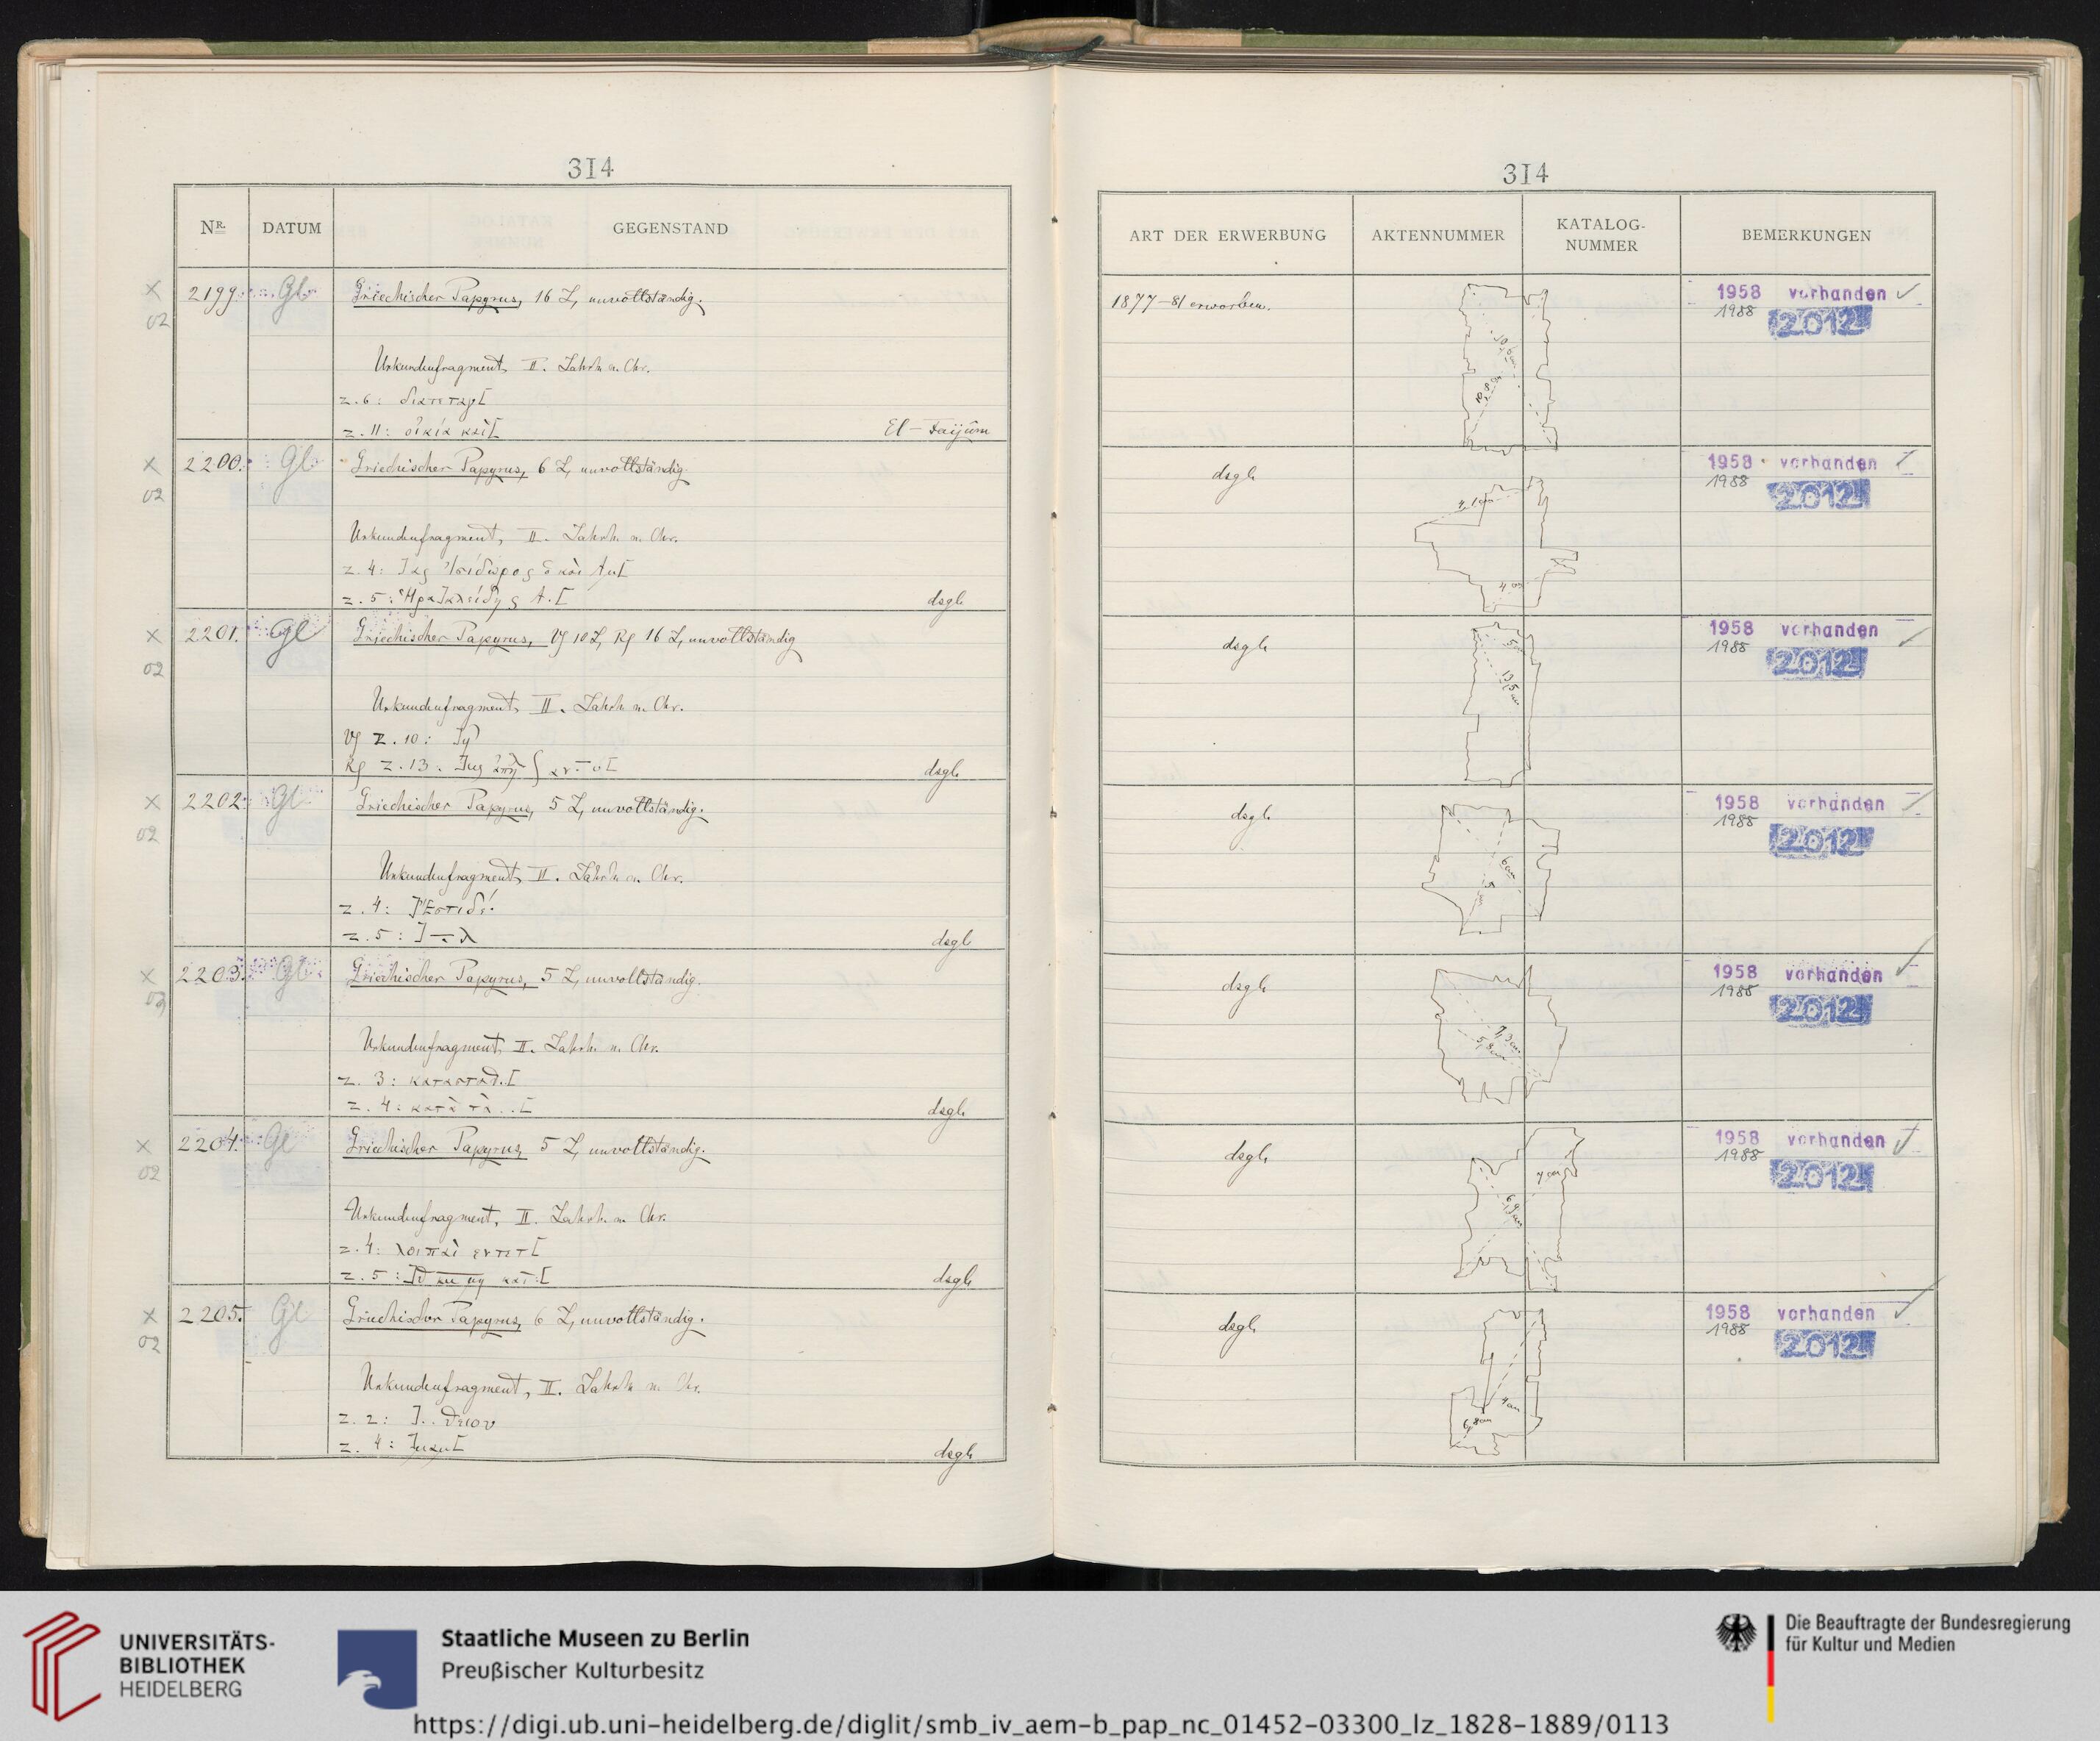 314
NR.
DATUM
GEGENSTAND
2199.
Gl
Griechischer Papyrus, 16 Z, unvollständig.
Urkundenfragment, II. Jahrh. n. Chr.
Z. 11: οἰκία καὶ[
El-Faijûm
2200.
Gl
Griechischer Papyrus, 6 Z, unvollständig
Urkundenfragment, II. Jahrh. n. Chr.
dsgl.
2201.
Gl
Griechischer Papyrus, Vs 10 Z, Rs 16 Z, unvollständig
Urkundenfragment, II. Jahrh. n. Chr.
dsgl.
2202.
Gl
Griechischer Papyrus, 5 Z, unvollständig.
Urkundenfragment, II. Jahrh. n. Chr.
dsgl
2203.
Gl
Griechischer Papyrus, 5 Z, unvollständig.
Urkundenfragment, II. Jahrh. n. Chr.
dsgl.
2204.
Gl
Griechischer Papyrus, 5 Z, unvollständig.
Urkundenfragment, II. Jahrh. n. Chr.
dsgl.
2205.
Gl
Griechischer Papyrus, 6 Z, unvollständig.
Urkundenfragment, II. Jahrh. n. Chr.
dsgl.
314
ART DER ERWERBUNG
AKTENNUMMER
KATALOG-
NUMMER
BEMERKUNGEN
1877-81 erworben.
1958 vorhanden
1988
2012
dsgl.
4,1 cm
4 cm
1958 vorhanden
1988
2012
dsgl.
13,5 cm
1958 vorhanden
1988
2012
dsgl.
6 cm
1958 vorhanden
1988
2012
dsgl.
7,3 cm
5,8 cm
1958 vorhanden
1988
2012
dsgl.
7 cm
6,9 cm
1958 vorhanden
1988
2012
dsgl.
4 cm
6,8 cm
1958 vorhanden
1988
2012
UNIVERSITÄTS-
BIBLIOTHEK
HEIDELBERG
Staatliche Museen zu Berlin
Preußischer Kulturbesitz
Die Beauftragte der Bundesregierung
für Kultur und Medien
https://digi.ub.uni-heidelberg.de/diglit/smb_iv_aem-b_pap_nc_01452-03300_lz_1828-1889/0113